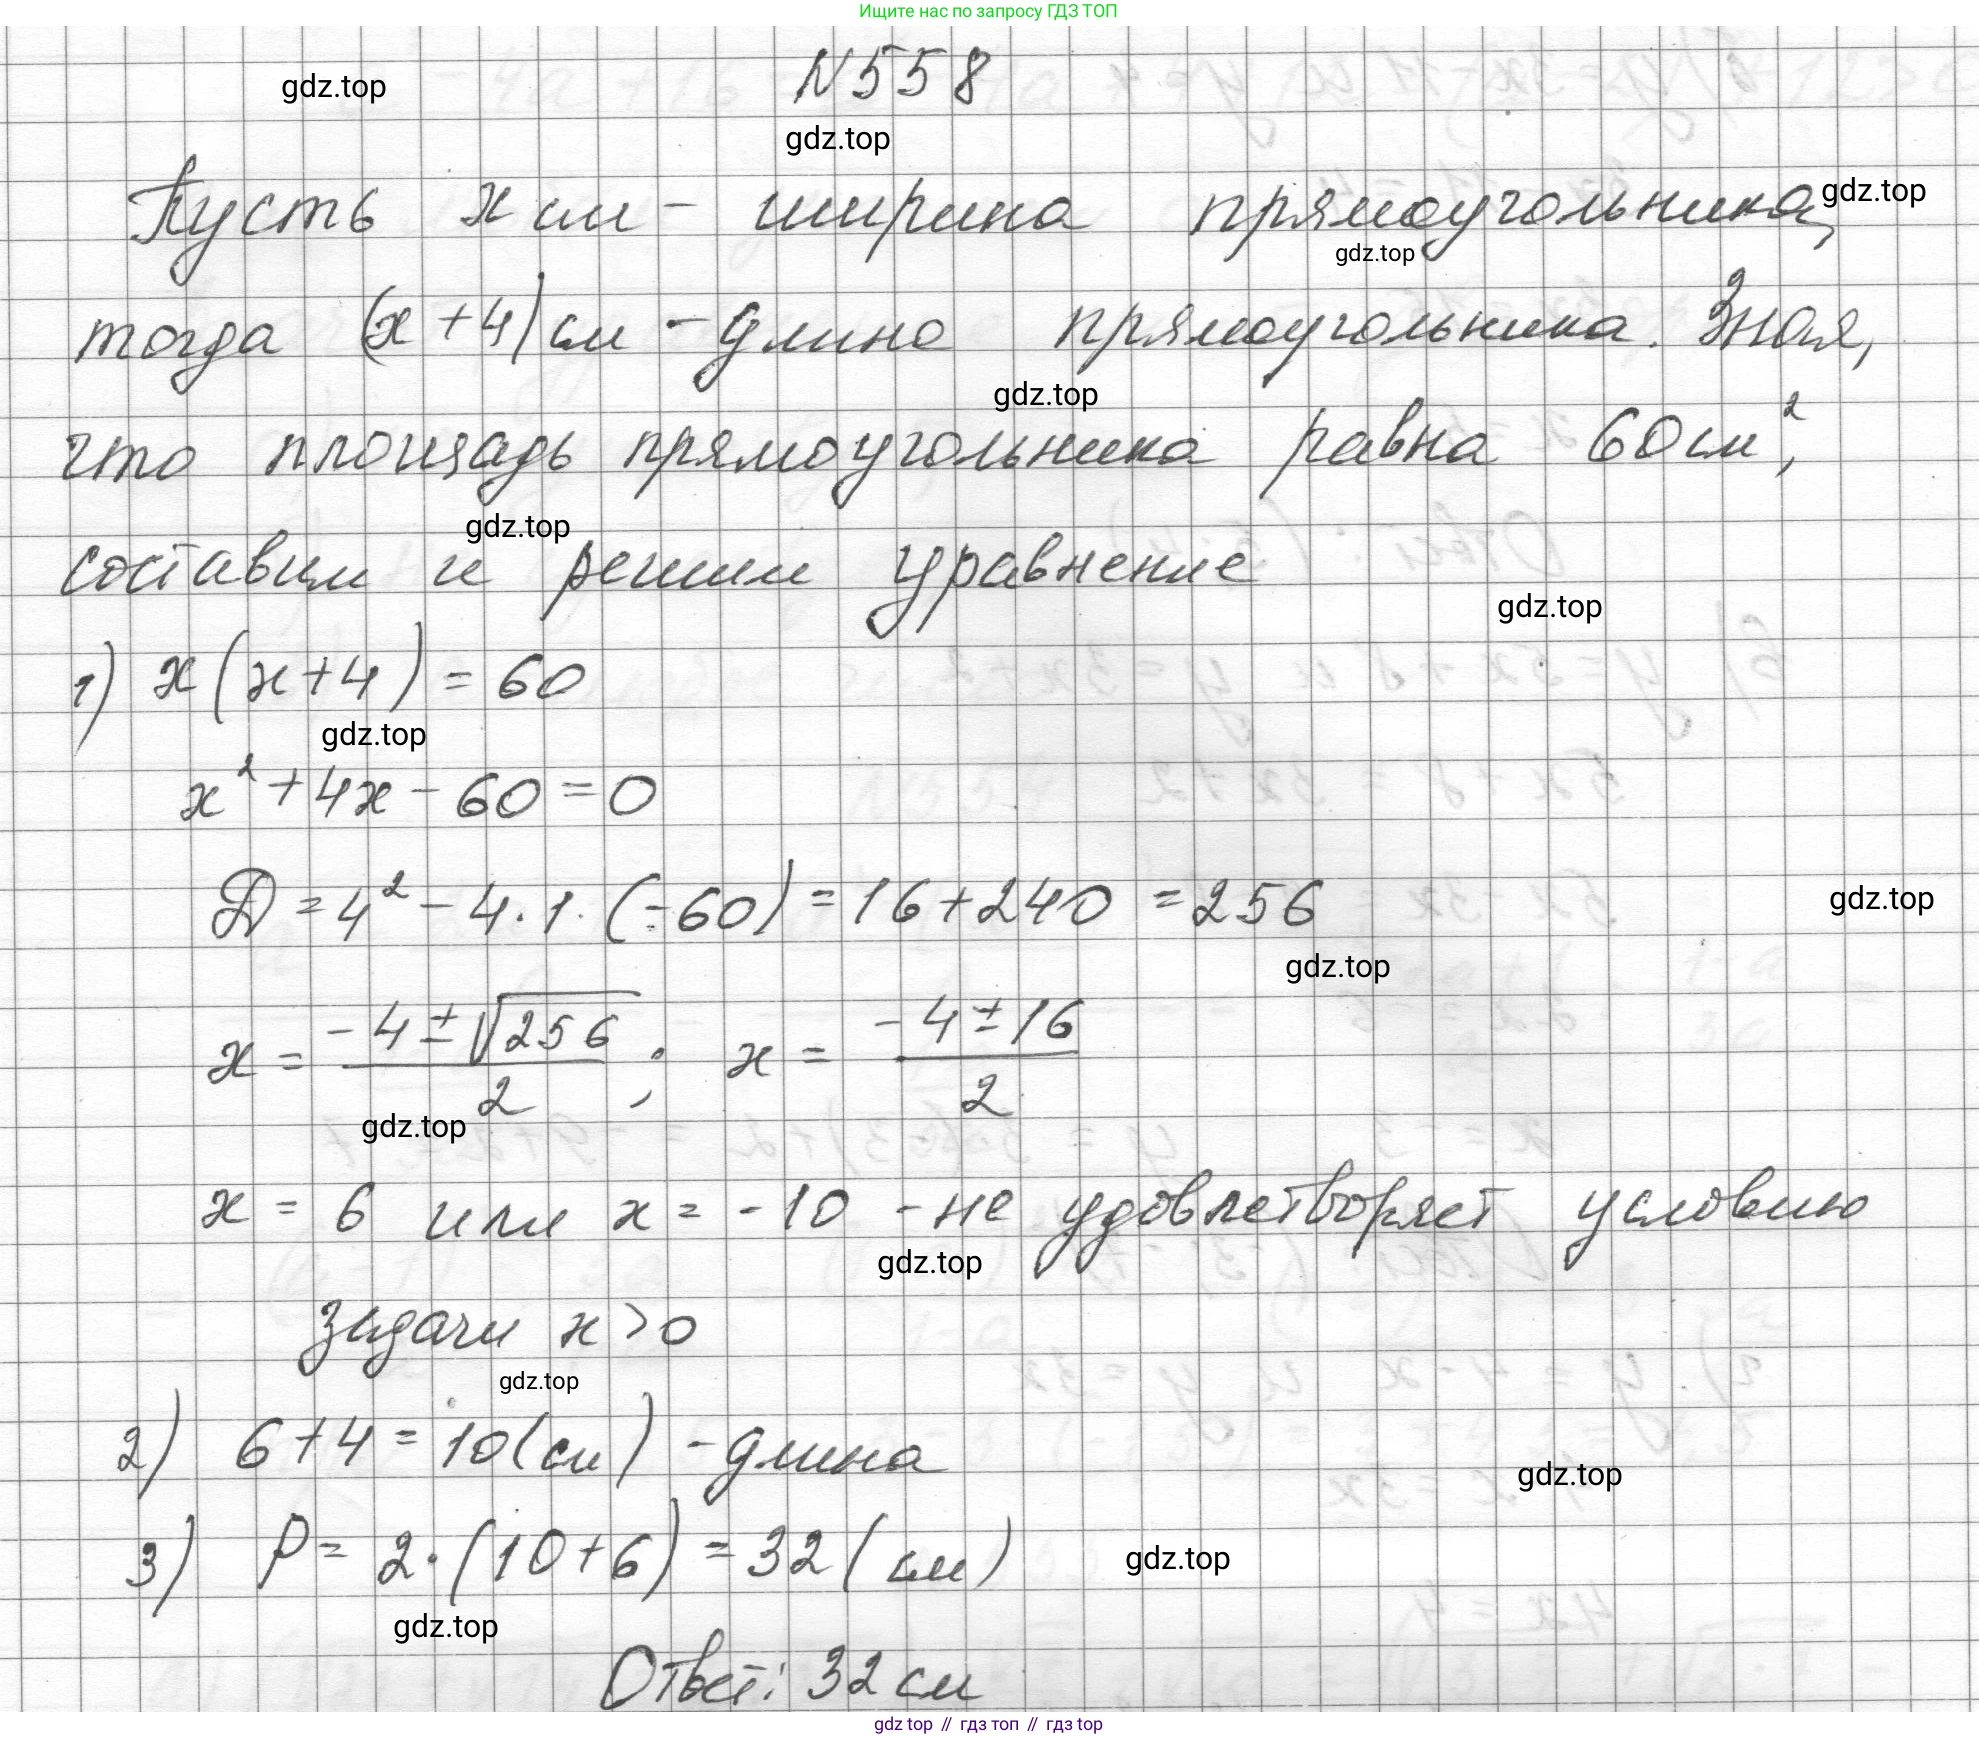 Ищите нас по запросу ГДЗ ТОП
N558
gdz.top
gdz.top
Пусть x см - ширина прямоугольника,
gdz.top
gdz.top
тогда (x+4) см - длина прямоугольника. Зная,
gdz.top
что площадь прямоугольника равна 60 см²,
gdz.top
составим и решим уравнение
gdz.top
1) x(x+4) = 60
gdz.top
x² + 4x - 60 = 0
D = 4² - 4 · 1 · (-60) = 16 + 240 = 256
gdz.top
gdz.top
x = (-4 ± √256)/2 ; x = (-4 ± 16)/2
gdz.top
x = 6 или x = -10 - не удовлетворяет условию
gdz.top
задачи x > 0
gdz.top
2) 6 + 4 = 10 (см) - длина
gdz.top
3) P = 2 · (10 + 6) = 32 (см)
gdz.top
gdz.top
Ответ: 32 см
gdz top // гдз топ // гдз top